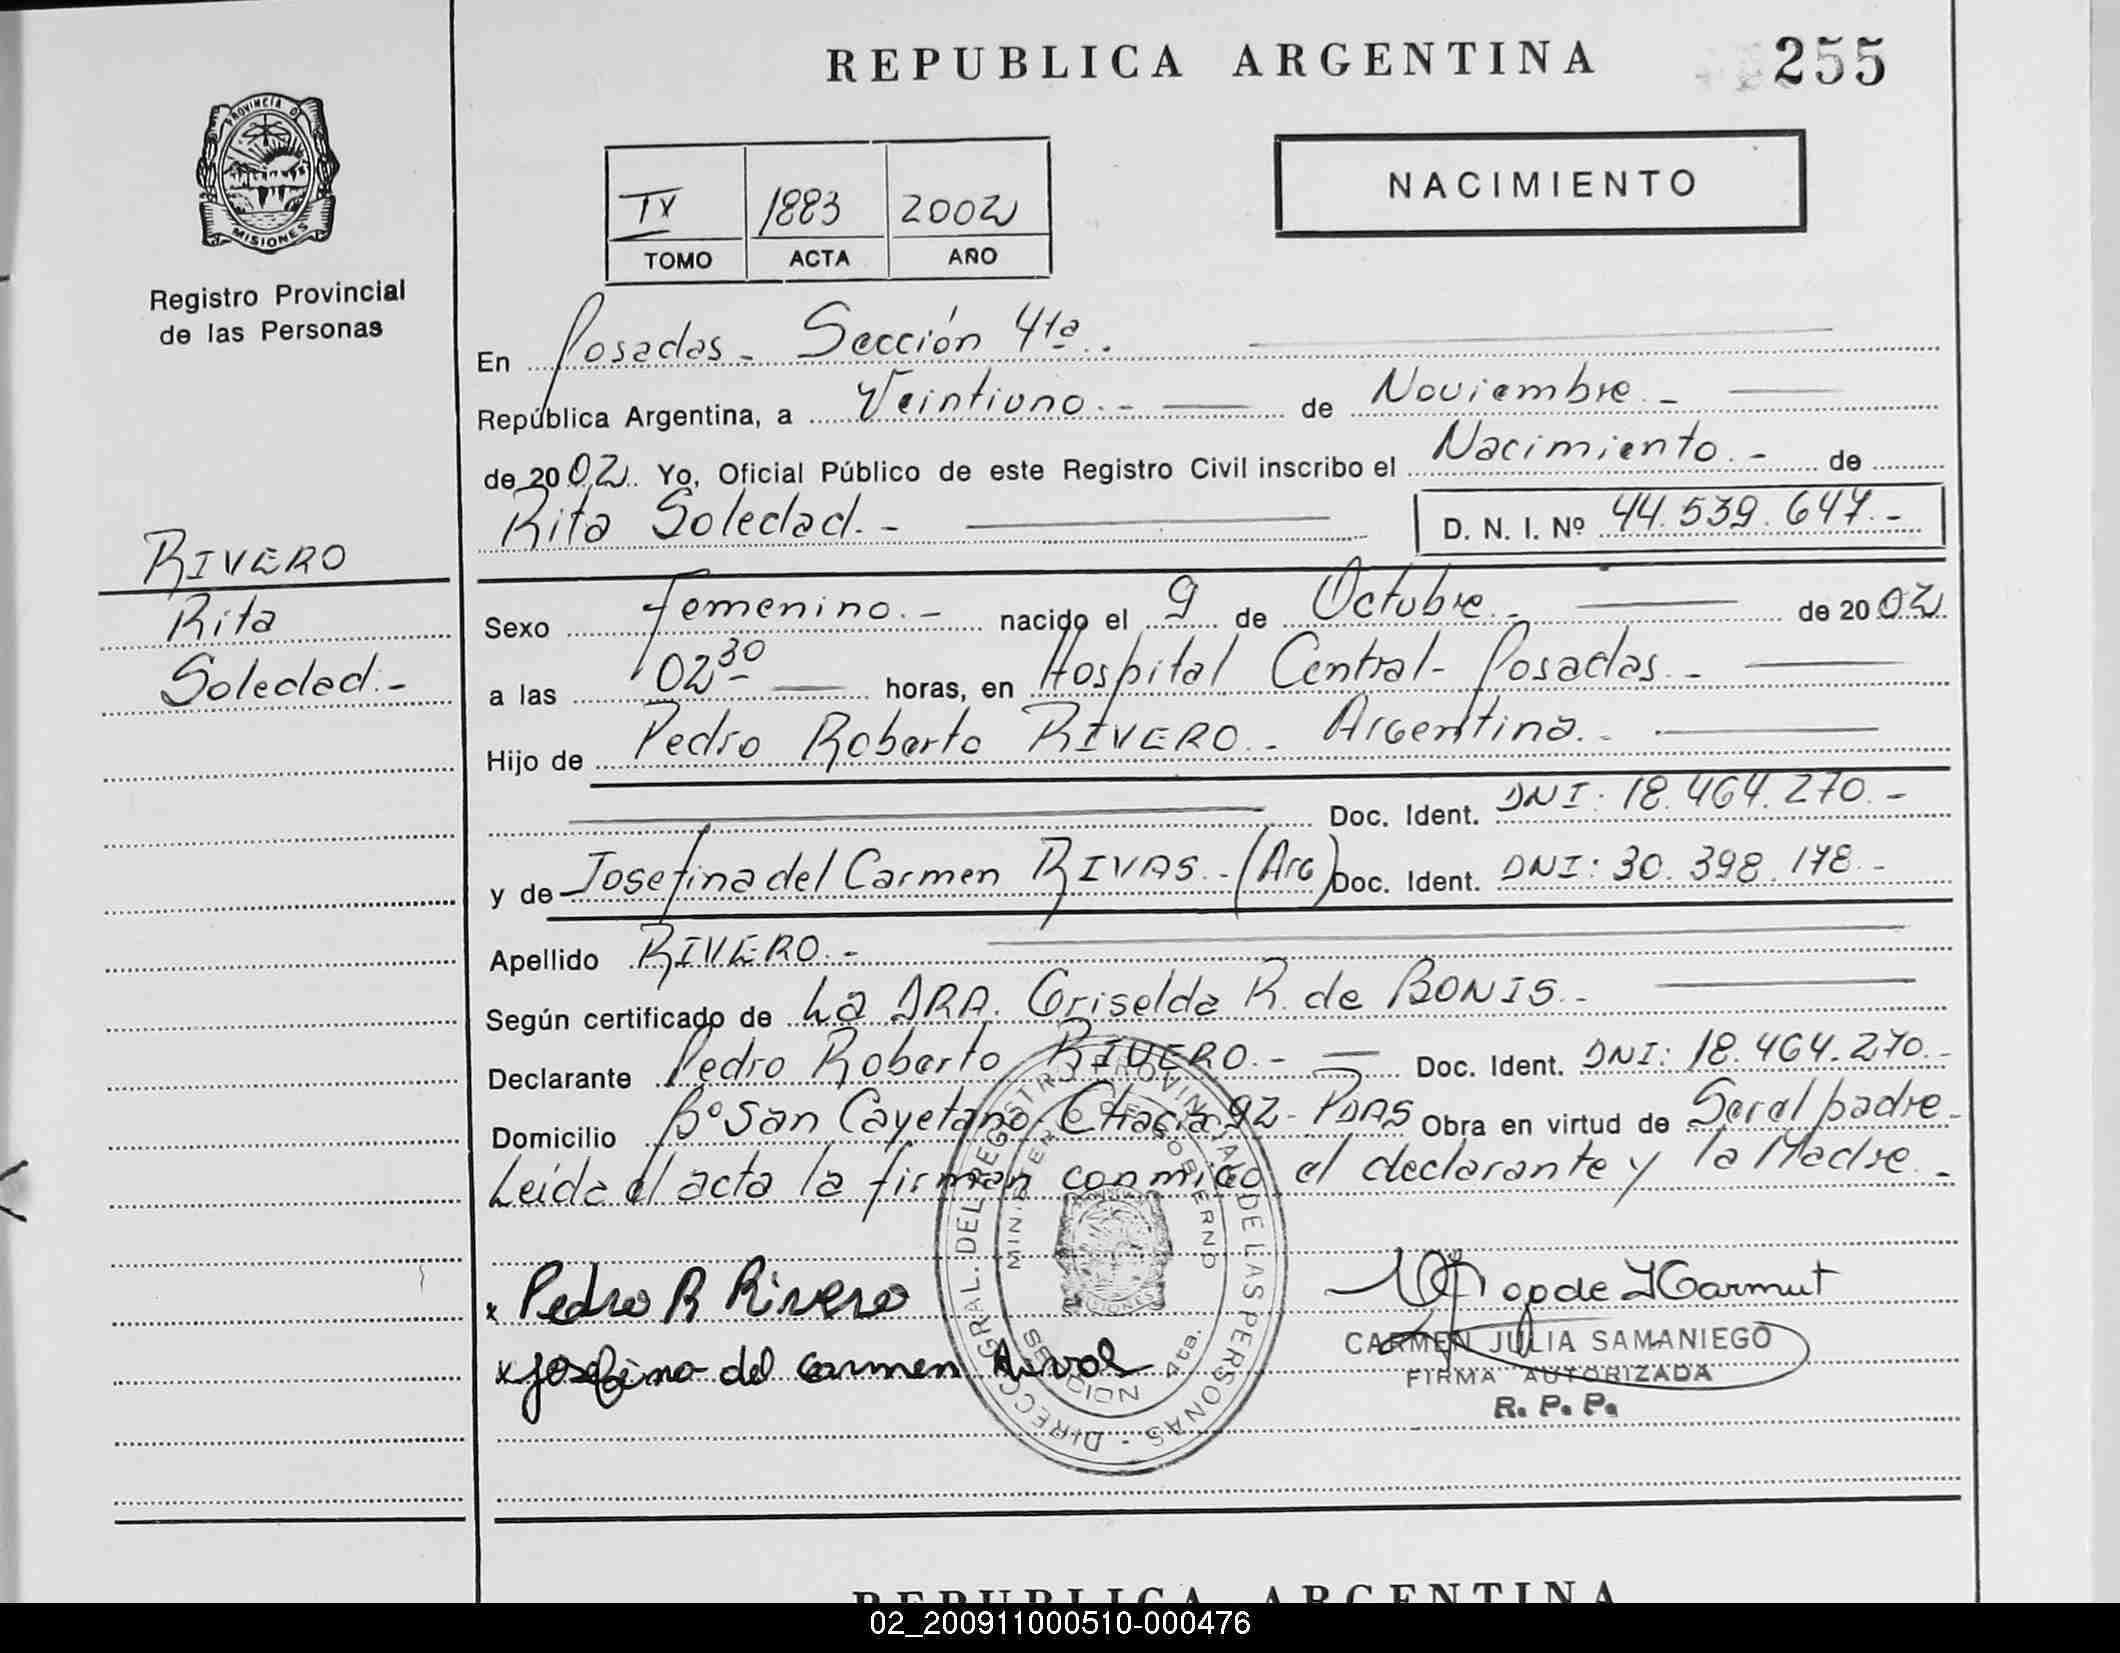 REPUBLICA ARGENTINA
255
PROVINCIA D
MISIONES
Registro Provincial
de las Personas
NACIMIENTO
IV 1883 2002
TOMO ACTA AÑO
En Posadas - Sección 4ta.
República Argentina, a Veintiuno.- de Noviembre.-
de 2002. Yo, Oficial Público de este Registro Civil inscribo el Nacimiento.- de
Rita Soledad.- D. N. I. Nº 44.539.647.-
RIVERO
Rita
Soledad.-
Sexo Femenino.- nacido el 9 de Octubre.- de 2002.
a las 02 30 horas, en Hospital Central- Posadas.-
Hijo de Pedro Roberto RIVERO.- Argentina.-
Doc. Ident. DNI: 18.464.270.-
y de Josefina del Carmen RIVAS.- (Arg) Doc. Ident. DNI: 30.398.178.-
Apellido RIVERO.-
Según certificado de La DRA. Griselda R. de BONIS.-
Declarante Pedro Roberto RIVERO.- Doc. Ident. DNI: 18.464.270.-
Domicilio Bº San Cayetano, Chacra 92- PDAS Obra en virtud de Ser el padre-
Leída el acta la firman conmigo el declarante y la Madre.-
x Pedro R Rivero
x Josefina del Carmen Rivas
DIRECC. GRAL. DEL REGISTRO PROVINCIAL DE LAS PERSONAS -
MINISTERIO DE GOBIERNO
MISIONES
4ta.
CARMEN JULIA SAMANIEGO
FIRMA AUTORIZADA
R. P. P.
REPUBLICA ARGENTINA
02_200911000510-000476